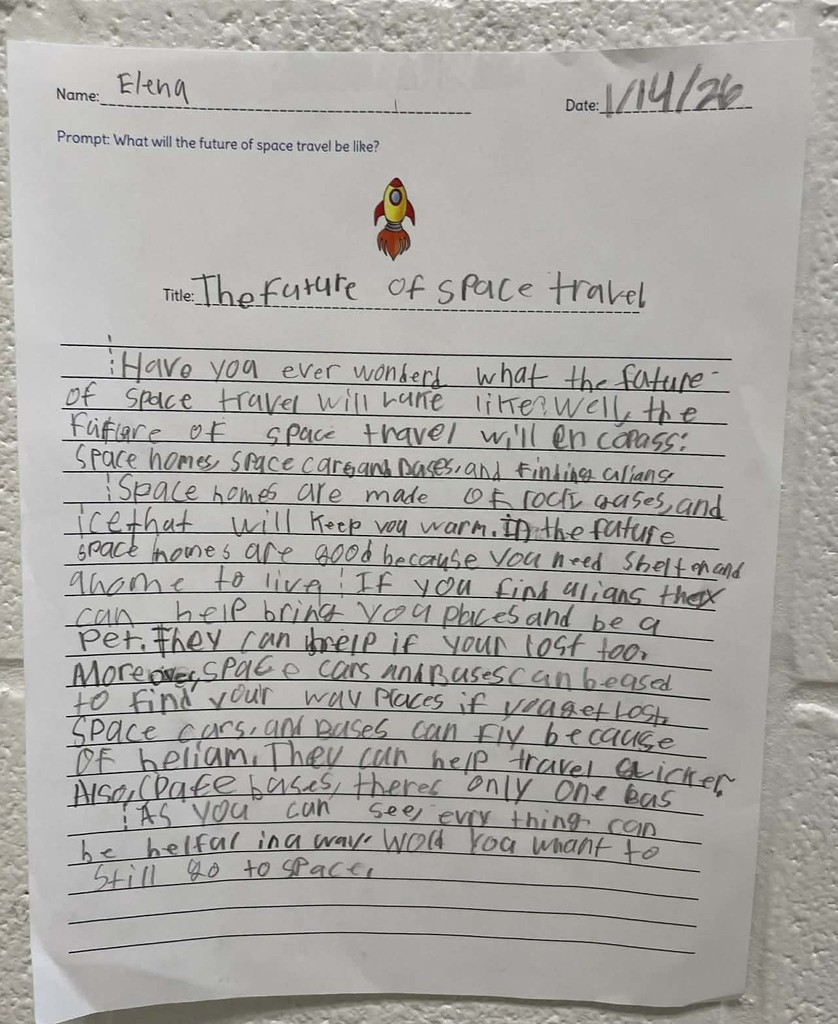 Name: Elena
Date: 1/14/26
Prompt: What will the future of space travel be like?
Title: The future of space travel
Have you ever wonderd what the future
of space travel will like? Well, the
of space travel will en copass:
space homes, space cars and buses, and finding alians
Space homes are made of rock gases, and
ice that will keep you warm. In the future
space homes are good because you need shelter and
a home to live! If you find alians they
can help bring you places and be a
pet. They can help if your lost too.
Moreover, space cars and Buses can be used
to find your way places if you get lost.
Space cars, and Buses can fly because
of heliam. They can help travel quicker.
Also, space buses, theres only one bus
As you can see, evry thing can
be helful in a way. Wold you whant to
still go to space.